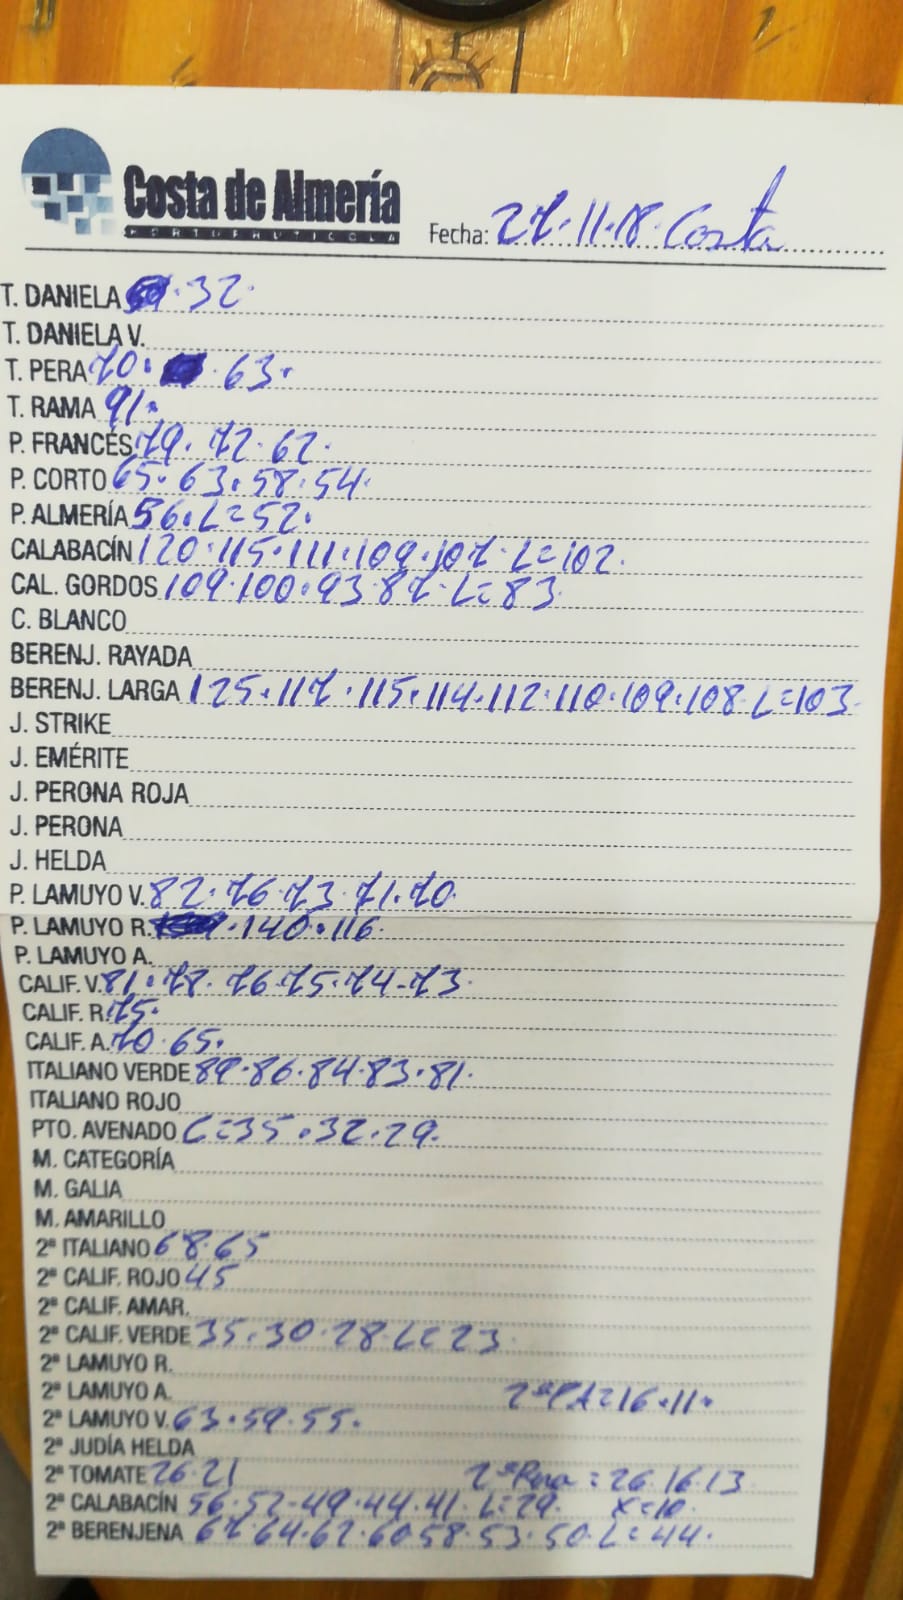 Costa de Almería
HORTOFRUTÍCOLA
Fecha: 27.11.18. Costa
T. DANIELA . 32.
T. DANIELA V.
T. PERA 70. . 63.
T. RAMA 91.
P. FRANCÉS 79. 72. 62.
P. CORTO 65. 63. 58. 54.
P. ALMERÍA 56. L=52.
CALABACÍN 120. 115. 111. 109. 107. L=102.
CAL. GORDOS 109. 100. 93. 87. L=83.
C. BLANCO
BERENJ. RAYADA
BERENJ. LARGA 125. 117. 115. 114. 112. 110. 109. 108. L=103.
J. STRIKE
J. EMÉRITE
J. PERONA ROJA
J. PERONA
J. HELDA
P. LAMUYO V. 82. 76. 73. 71. 70.
P. LAMUYO R. . 140. 116.
P. LAMUYO A.
CALIF. V. 81. 78. 76. 75. 74-73.
CALIF. R. 75.
CALIF. A. 70. 65.
ITALIANO VERDE 89. 86. 84. 83. 81.
ITALIANO ROJO
PTO. AVENADO L=35. 32. 29.
M. CATEGORÍA
M. GALIA
M. AMARILLO
2ª ITALIANO 68. 65
2ª CALIF. ROJO 45
2ª CALIF. AMAR.
2ª CALIF. VERDE 35. 30. 28. L=23.
2ª LAMUYO R.
2ª LAMUYO A. 2ª PA=16. 11.
2ª LAMUYO V. 63. 59. 55.
2ª JUDÍA HELDA
2ª TOMATE 26. 21 2ª Pera = 26. 16. 13
2ª CALABACÍN 56. 52-49. 44. 41. L=29. X=10.
2ª BERENJENA 67. 64. 62. 60. 58. 53. 50. L=44.